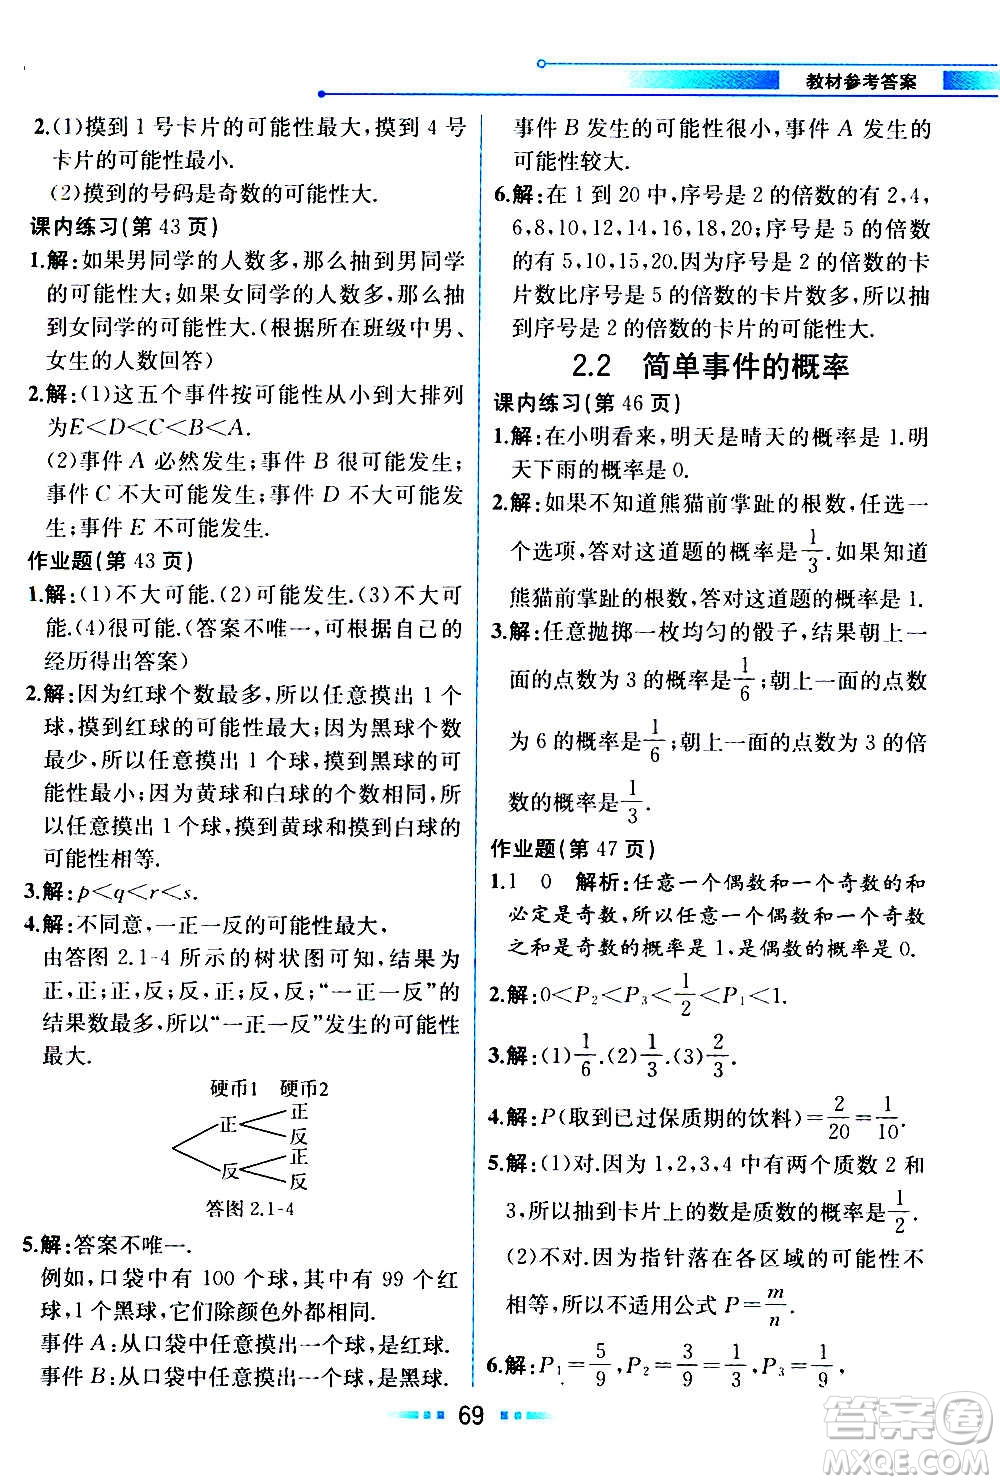 教材参考答案
2.(1)摸到 1 号卡片的可能性最大,摸到 4 号
卡片的可能性最小.
(2)摸到的号码是奇数的可能性大.
课内练习(第 43 页)
1.解:如果男同学的人数多,那么抽到男同学
的可能性大;如果女同学的人数多,那么抽
到女同学的可能性大.(根据所在班级中男、
女生的人数回答)
2.解:(1)这五个事件按可能性从小到大排列
为E<D<C<B<A.
(2)事件 A 必然发生;事件 B 很可能发生;
事件 C 不大可能发生;事件 D 不大可能发
生;事件 E 不可能发生.
作业题(第 43 页)
1.解:(1)不大可能.(2)可能发生.(3)不大可
能.(4)很可能.(答案不唯一,可根据自己的
经历得出答案)
2.解:因为红球个数最多,所以任意摸出 1 个
球,摸到红球的可能性最大;因为黑球个数
最少,所以任意摸出 1 个球,摸到黑球的可
能性最小;因为黄球和白球的个数相同,所
以任意摸出 1 个球,摸到黄球和摸到白球的
可能性相等.
3.解:p<q<r<s.
4.解:不同意,一正一反的可能性最大,
由答图 2.1-4 所示的树状图可知,结果为
正,正;正,反;反,正;反,反;“一正一反”的
结果数最多,所以“一正一反”发生的可能性
最大.
硬币1 硬币2
正
正
反
反
正
反
答图 2.1-4
5.解:答案不唯一.
例如,口袋中有 100 个球,其中有 99 个红
球,1 个黑球,它们除颜色外都相同.
事件 A:从口袋中任意摸出一个球,是红球.
事件 B:从口袋中任意摸出一个球,是黑球.
事件 B 发生的可能性很小,事件 A 发生的
可能性较大.
6.解:在 1 到 20 中,序号是 2 的倍数的有 2,4,
6,8,10,12,14,16,18,20;序号是 5 的倍数
的有 5,10,15,20.因为序号是 2 的倍数的卡
片数比序号是 5 的倍数的卡片数多,所以抽
到序号是 2 的倍数的卡片的可能性大.
2.2 简单事件的概率
课内练习(第 46 页)
1.解:在小明看来,明天是晴天的概率是 1.明
天下雨的概率是 0.
2.解:如果不知道熊猫前掌趾的根数,任选一
个选项,答对这道题的概率是1/3.如果知道
熊猫前掌趾的根数,答对这道题的概率是 1.
3.解:任意抛掷一枚均匀的骰子,结果朝上一
面的点数为 3 的概率是1/6;朝上一面的点数
为 6 的概率是1/6;朝上一面的点数为 3 的倍
数的概率是1/3.
作业题(第 47 页)
1.1 0 解析:任意一个偶数和一个奇数的和
必定是奇数,所以任意一个偶数和一个奇数
之和是奇数的概率是 1,是偶数的概率是 0.
2.解:0<P₂<P₃<1/2<P₁<1.
3.解:(1)1/6.(2)1/3.(3)2/3.
4.解:P(取到已过保质期的饮料)=2/20=1/10.
5.解:(1)对.因为 1,2,3,4 中有两个质数 2 和
3,所以抽到卡片上的数是质数的概率是1/2.
(2)不对.因为指针落在各区域的可能性不
相等,所以不适用公式 P=m/n.
6.解:P₁=5/9,P₂=3/9=1/3,P₃=1/9,
69
答案圈
MXQE.COM